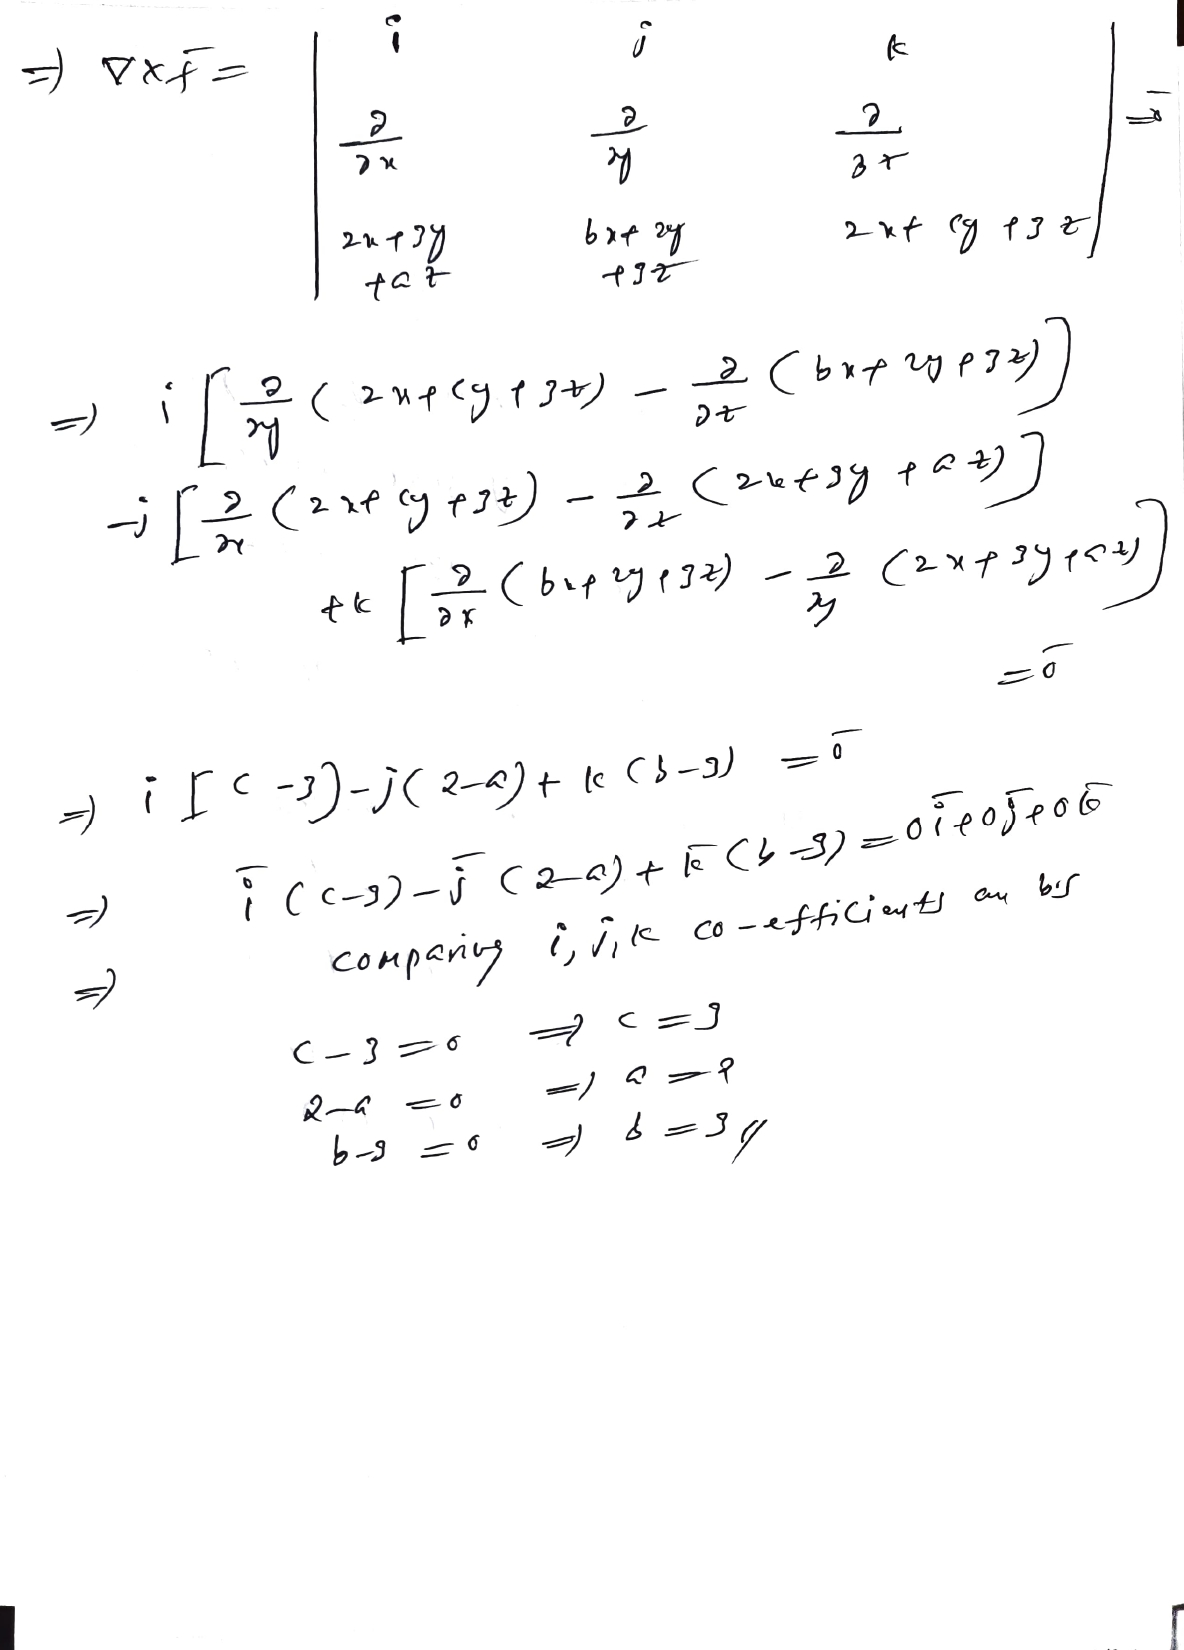 ⇒ ∇×f̄ = | i j k |
| ∂/∂x ∂/∂y ∂/∂z | = 
| 2x+3y+az bx+2y+3z 2x+cy+3z |
⇒ i [ ∂/∂y ( 2x+cy+3z) − ∂/∂z ( bx+2y+3z) ]
−j [ ∂/∂x (2x+cy+3z) − ∂/∂z (2x+3y+az) ]
+k [ ∂/∂x (bx+2y+3z) − ∂/∂y (2x+3y+az) ]
= 0̄
⇒ i [ c-3) - j( 2-a) + k (b-3) = 0̄
⇒ ī (c-3) - j̄ (2-a) + k̄ (b-3) = 0ī+0j̄+0k̄
⇒ comparing i, j, k co-efficients on b/s
c-3=0 ⇒ c=3
2-a=0 ⇒ a=2
b-3=0 ⇒ b=3//